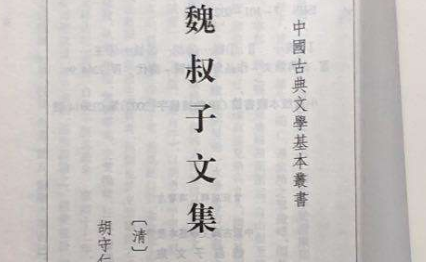 中國古典文學基本叢書
魏叔子文集
〔清〕
胡守仁